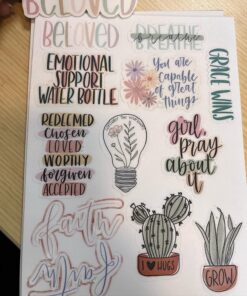 BELOVED
BELOVED
BREATHE
breathe
GRACE WINS
EMOTIONAL
SUPPORT
WATER BOTTLE
you are
capable
of great
things
REDEEMED
chosen
LOVED
WORTHY
forgiven
ACCEPTED
girl,
pray
about
it
faith
family
I ♥ HUGS
GROW